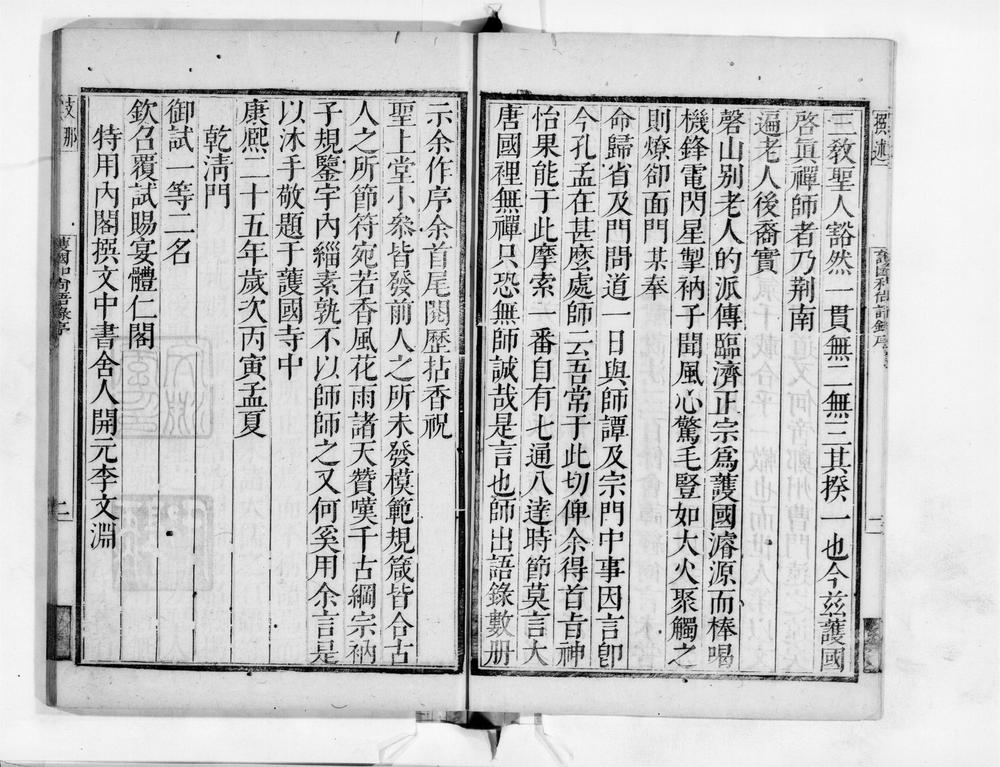 三教聖人豁然一貫無二無三其揆一也今茲護國
啓眞禪師者乃荆南
遍老人後裔實
磬山別老人的派傳臨濟正宗爲護國濬源而棒喝
機鋒電閃星掣衲子聞風心驚毛豎如大火聚觸之
則燎卻面門某奉
命歸省及門問道一日與師譚及宗門中事因言卽
今孔孟在甚麼處師云吾常于此切俾余得首肯神
怡果能于此摩索一番自有七通八達時節莫言大
唐國裡無禪只恐無師誠哉是言也師出語錄數册
示余作序余首尾閱歷拈香祝
聖上堂小叅皆發前人之所未發模範規箴皆合古
人之所節符宛若香風花雨諸天贊嘆千古綱宗衲
子規鑒宇內緇素孰不以師師之又何奚用余言是
以沐手敬題于護國寺中
康熙二十五年歲次丙寅孟夏
乾淸門
御試一等二名
欽召覆試賜宴體仁閣
特用內閣撰文中書舍人開元李文淵
二